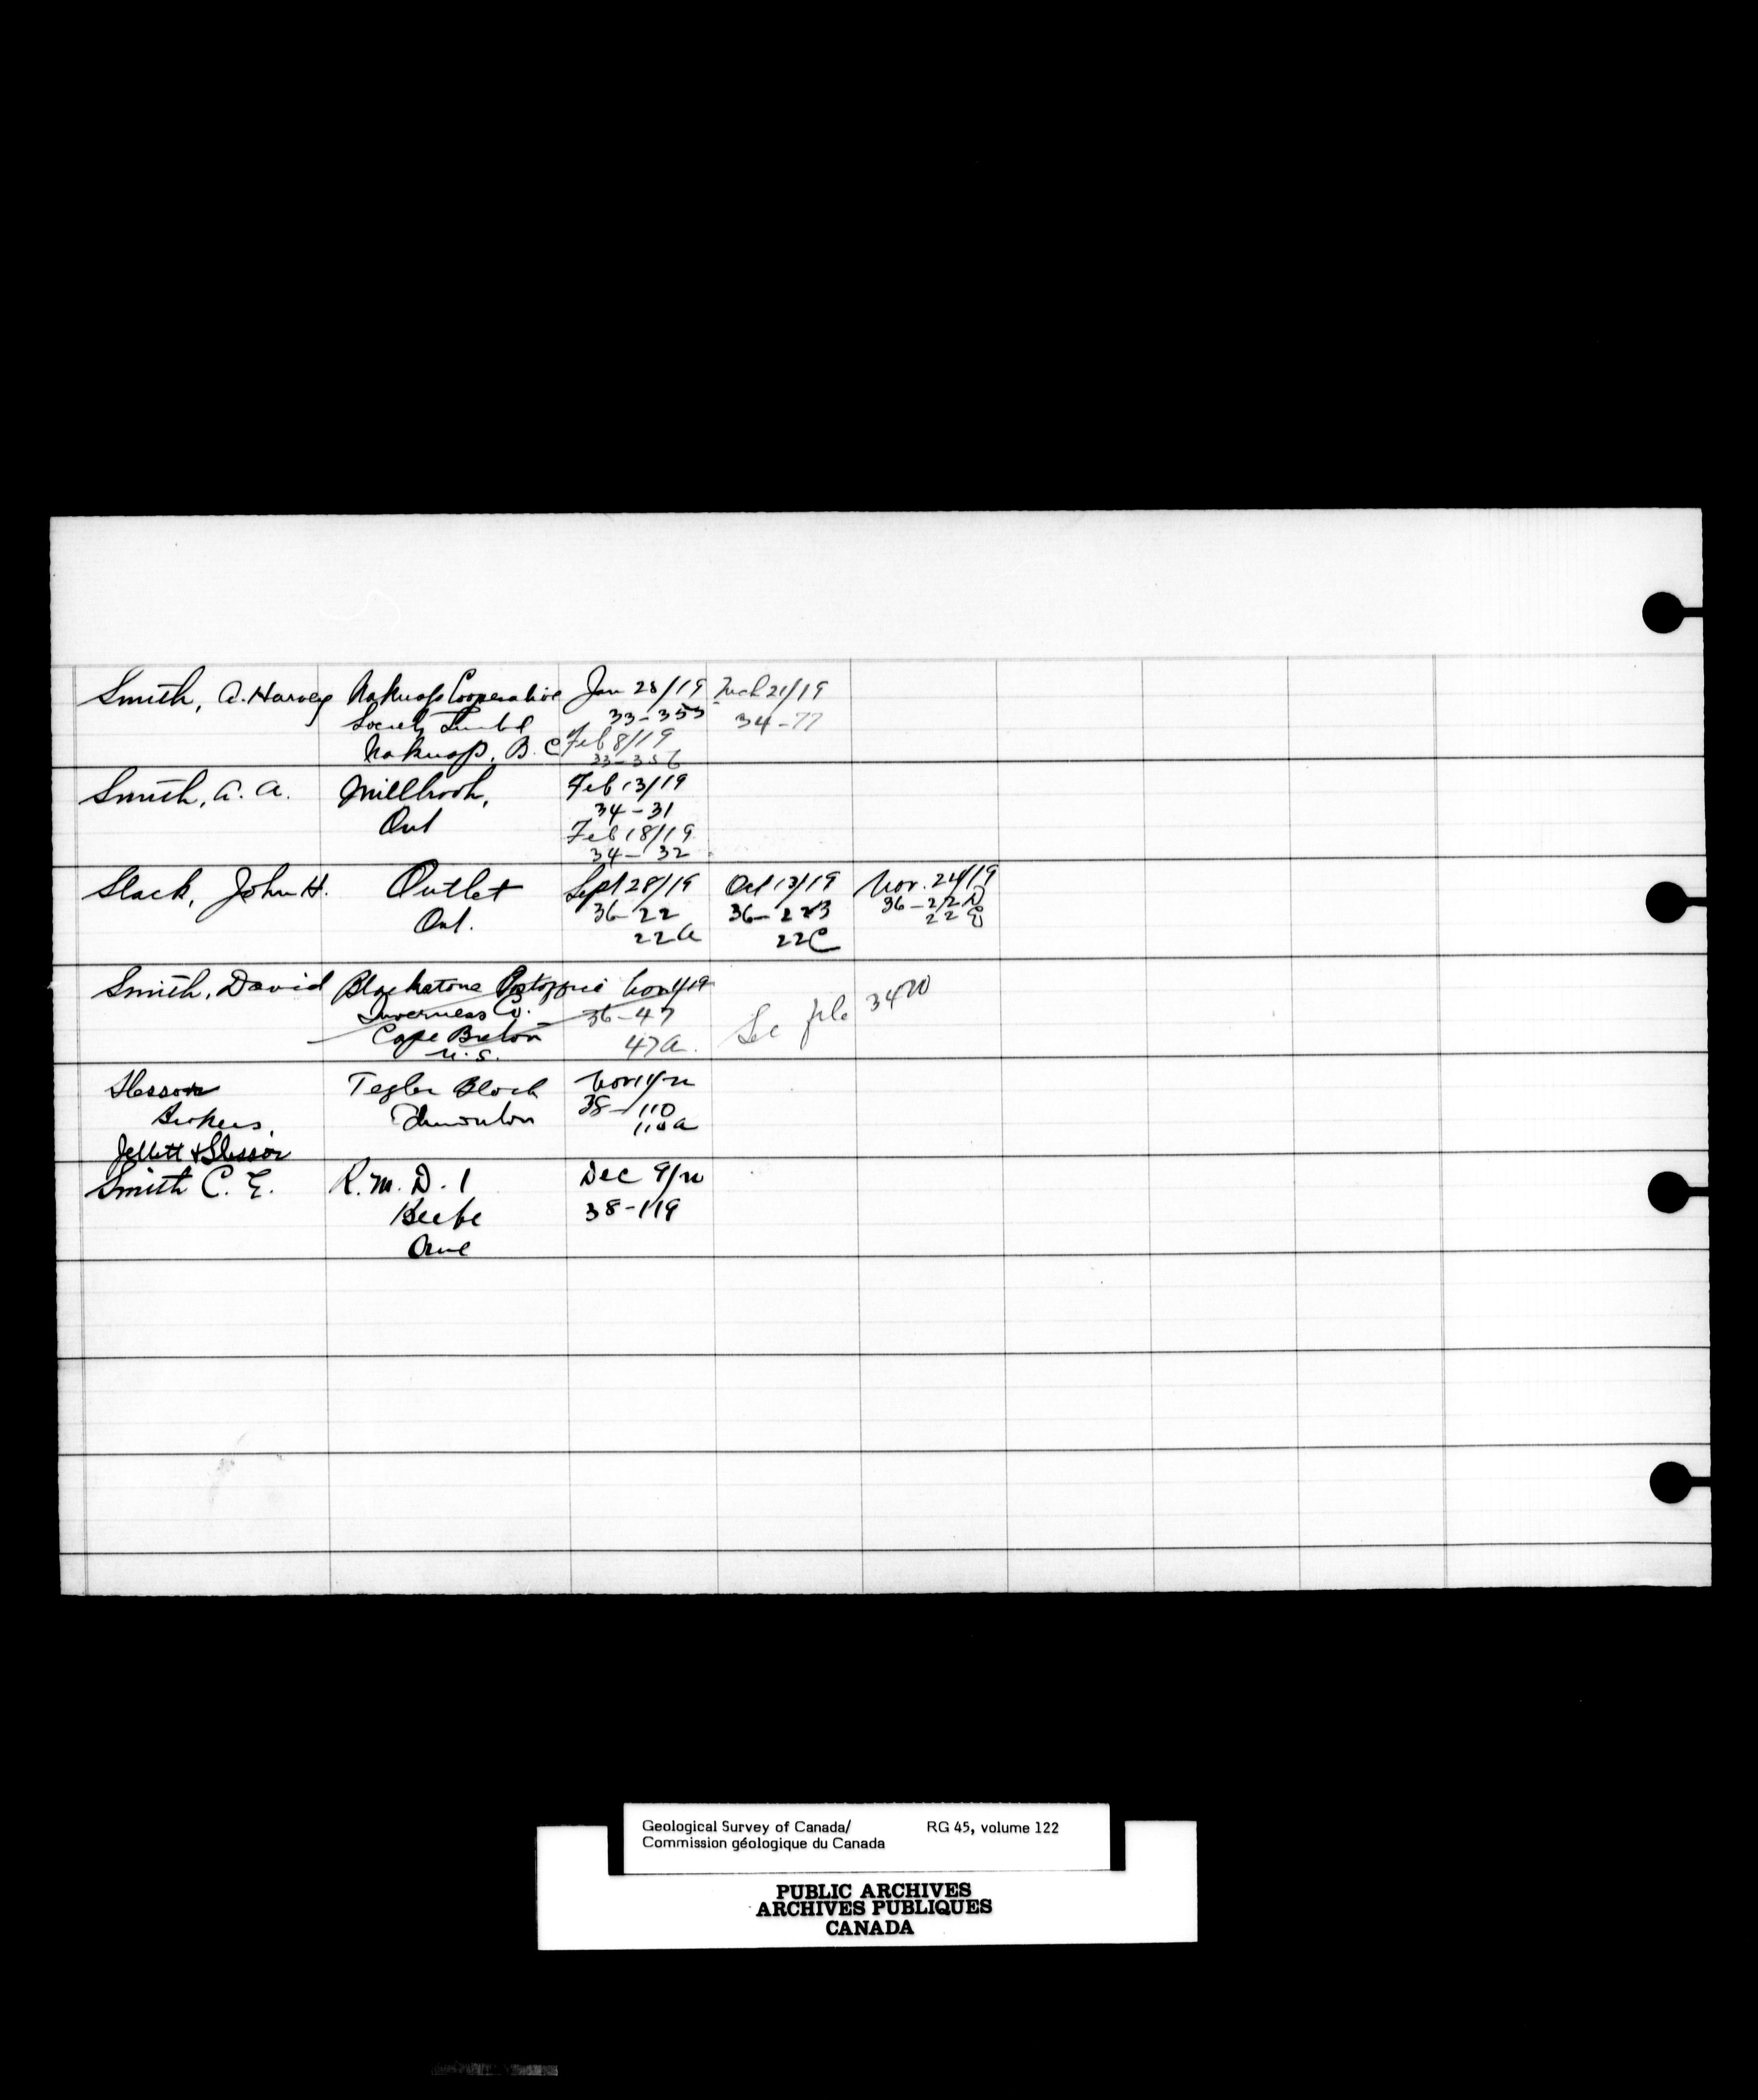 Smith, A. Harvey Nakusp Cooperative Jan 28/19 Mch 21/19
Society Limtd 33-353 34-77
Nakusp, B.C Feb 8/19
33-356
Smith, A. A. Millbrook, Feb 13/19
Ont 34-31
Feb 18/19
34-32
Slack, John H. Outlet Sept 28/19 Oct 13/19 Nov. 24/19
Ont. 36-22 36-22B 36-22D
22A 22C 22E
Smith, David Blackstone Postoffice Nov 4/19
Inverness Co. 36-47 See file 34W
Cape Breton 47A.
N.S.
Slessor Tegler Block Nov 11/20
Brokers, Edmonton 38-110
110a
Jellett & Slessor
Smith C. E. R.M.D. 1 Dec 9/20
Beebe 38-119
Que
Geological Survey of Canada/ RG 45, volume 122
Commission géologique du Canada
PUBLIC ARCHIVES
ARCHIVES PUBLIQUES
CANADA